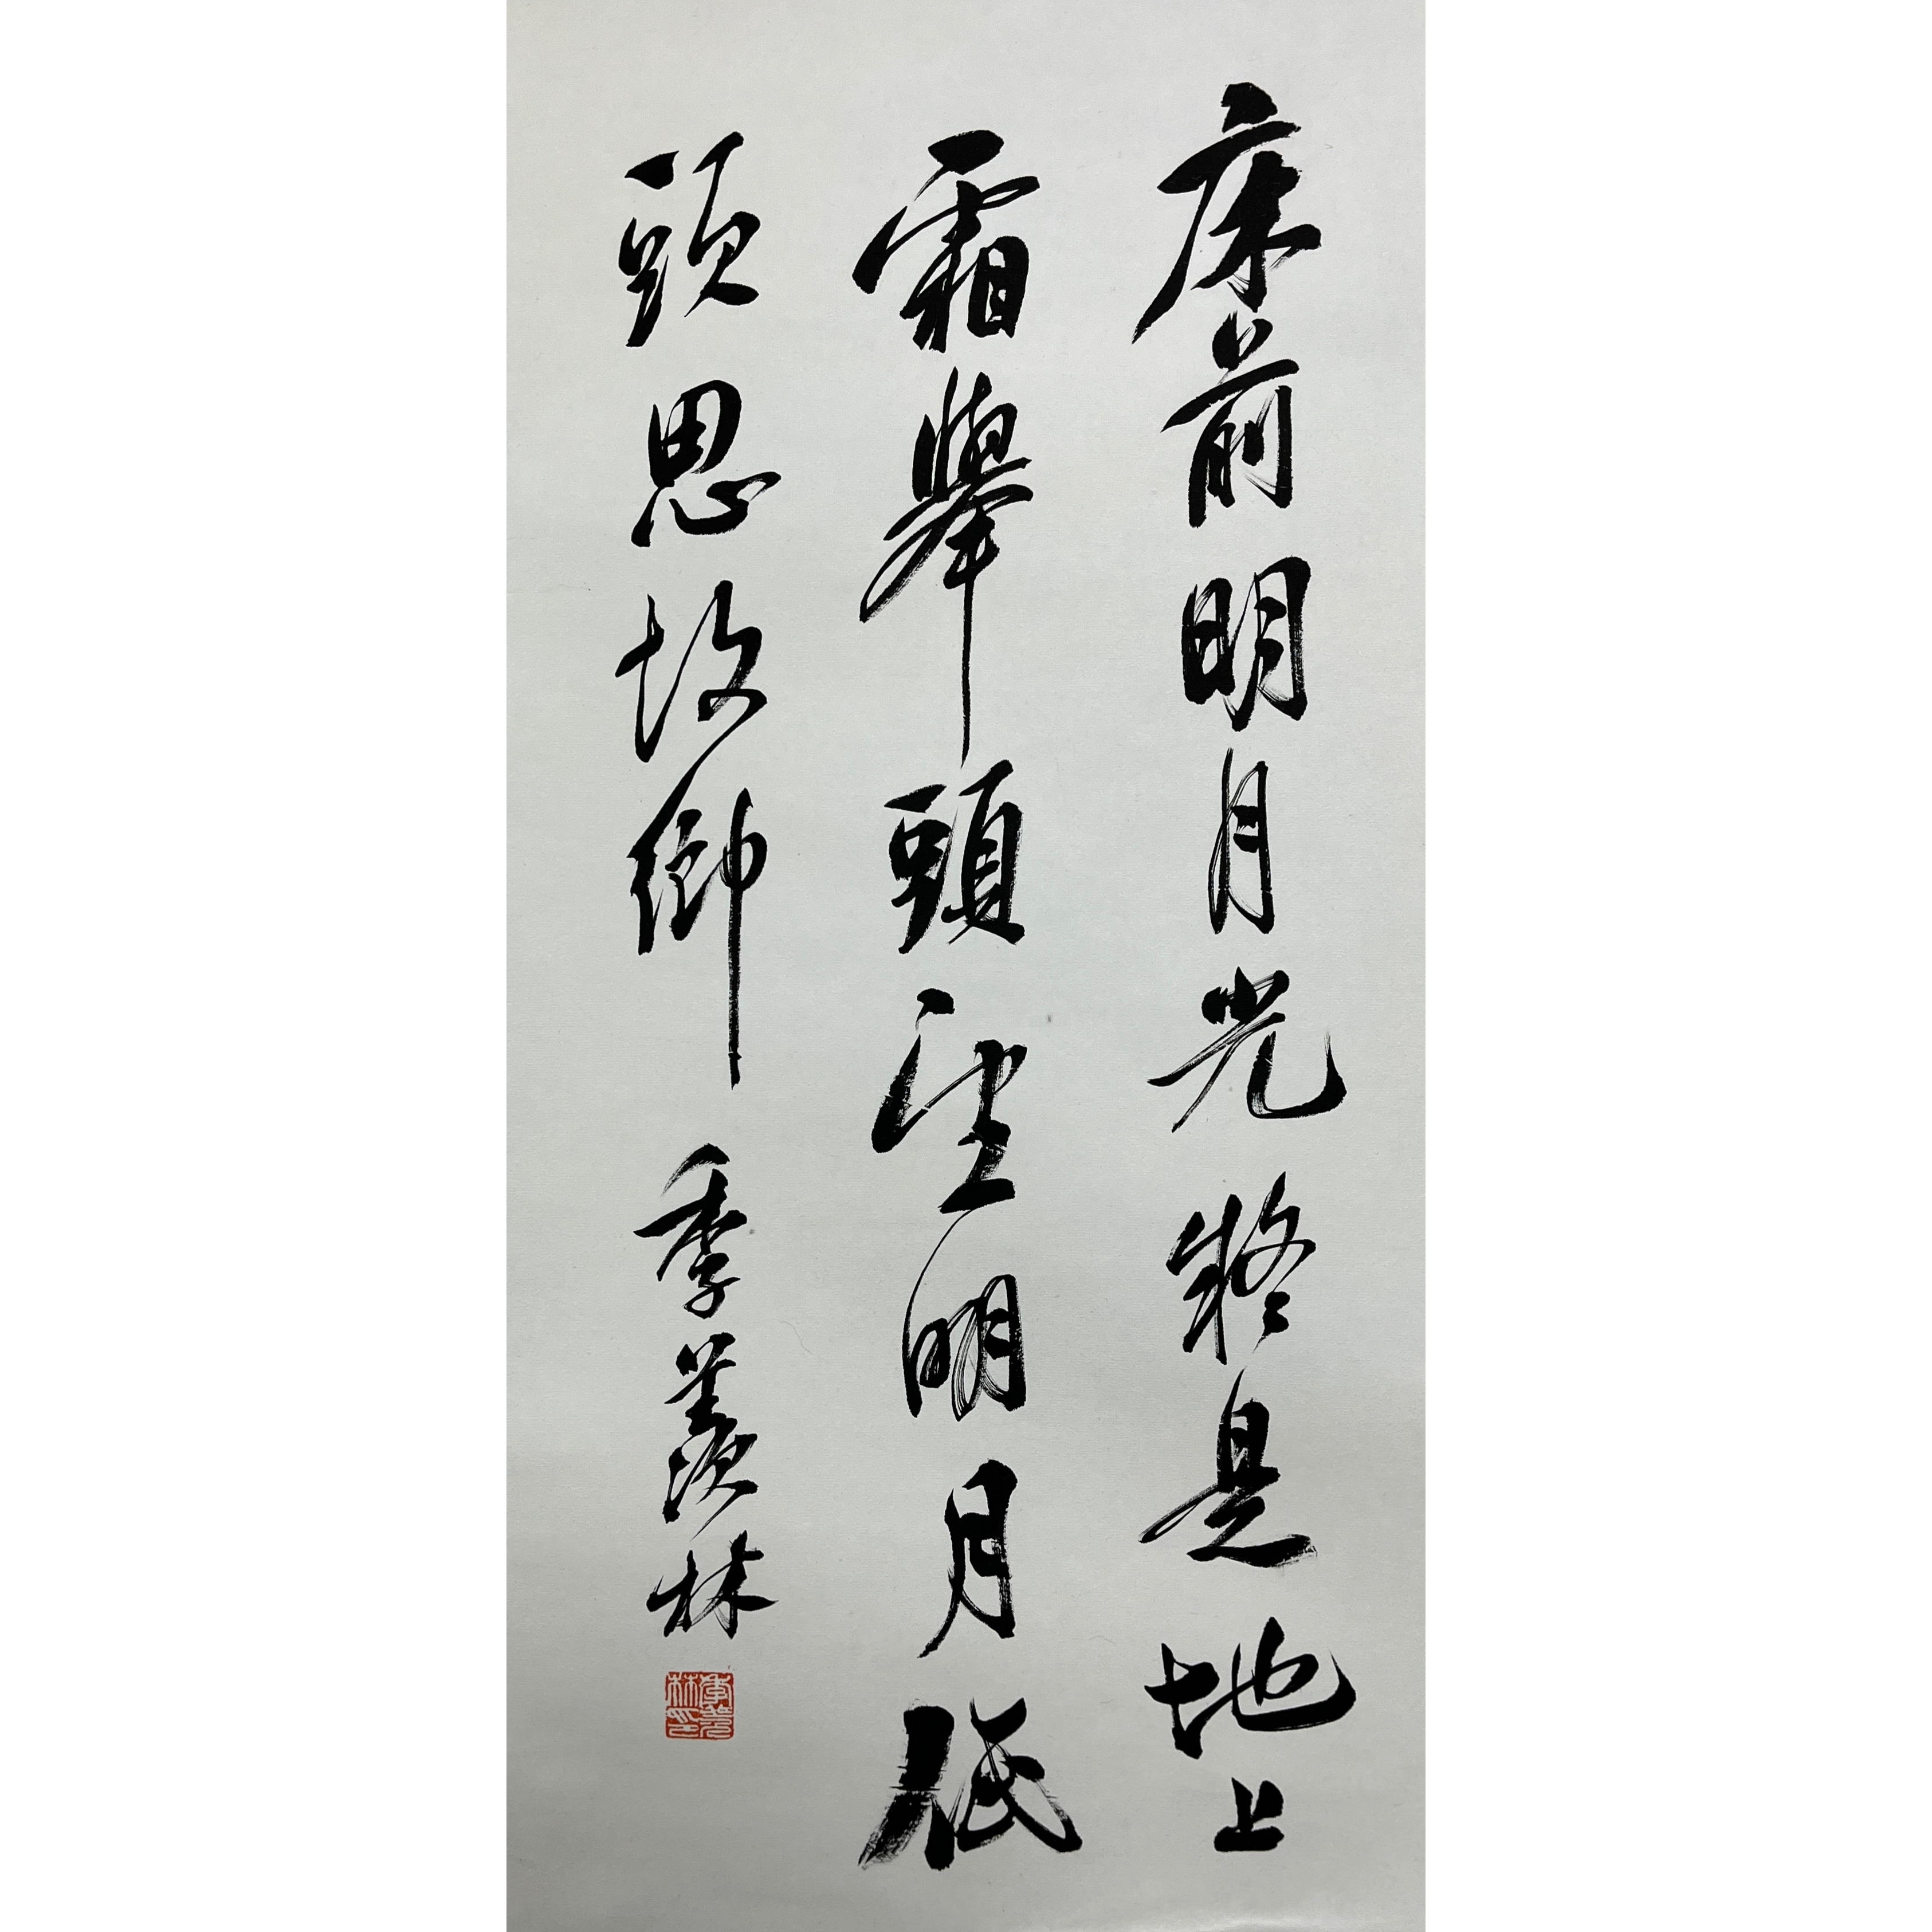 床前明月光疑是地上
霜舉頭望明月低
頭思故鄉 季羨林
季羨林印